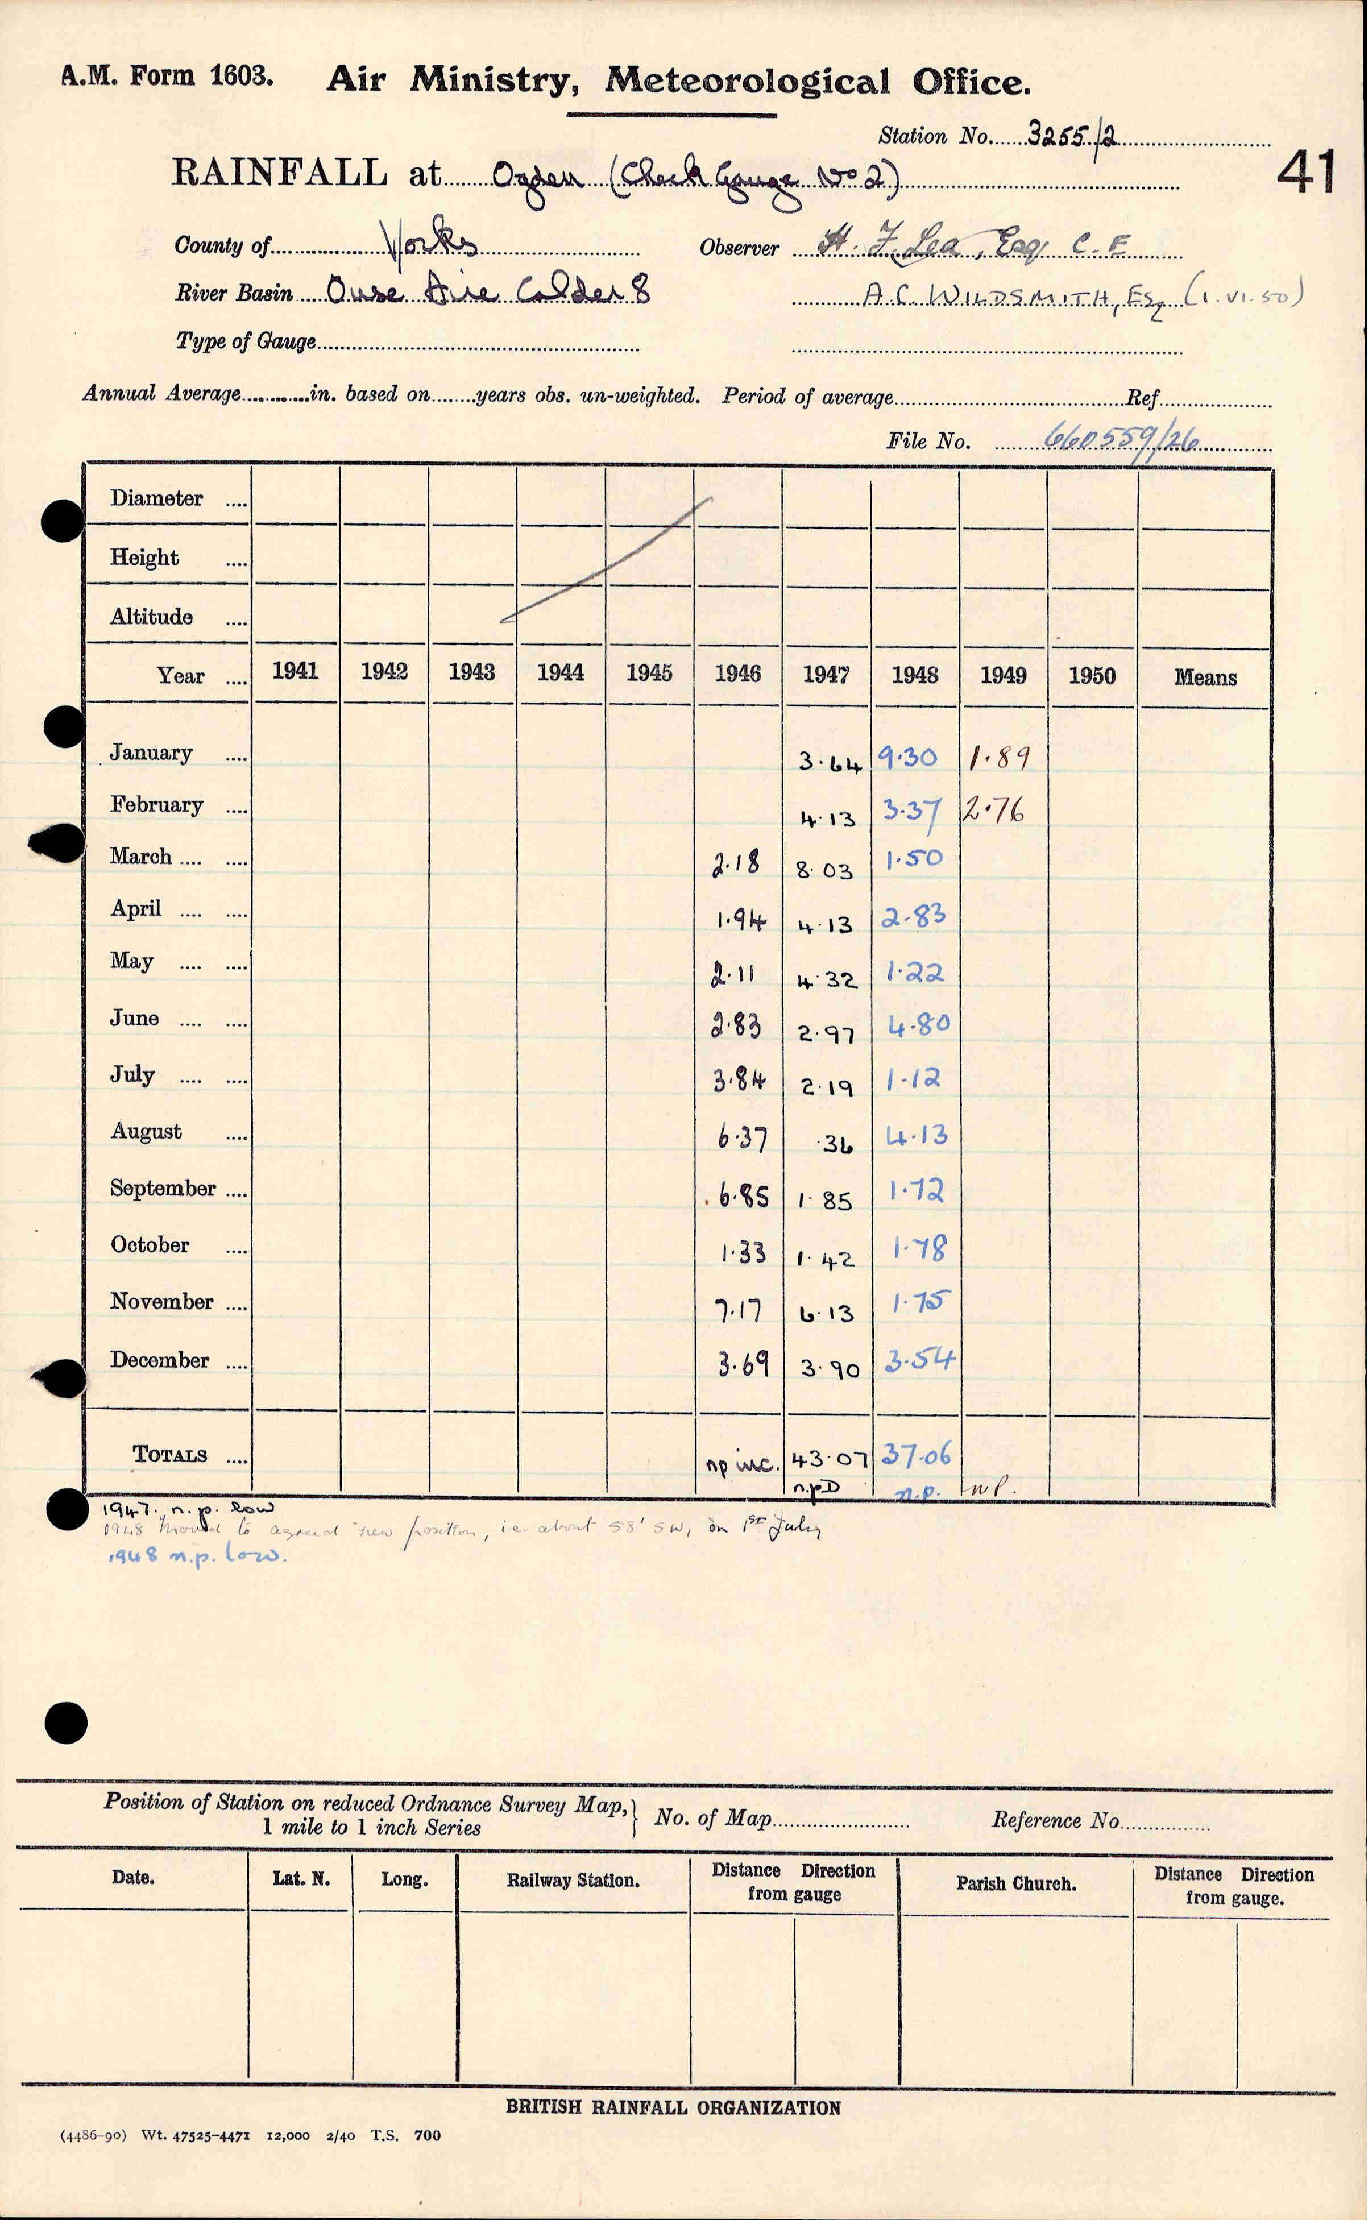 A.M. Form 1603. Air Ministry, Meteorological Office.
Station No. 3255/2
41
RAINFALL at Ogden (Check Gauge No 2)
County of Yorks Observer H. F. Lea, Esq C. E
River Basin Ouse Aire Calder 8 A.C. WILDSMITH, Esq (1.VI.50)
Type of Gauge
Annual Average in. based on years obs. un-weighted. Period of average Ref.
File No. 660559/26
Diameter ....
Height ....
Altitude ....
Year .... 1941 1942 1943 1944 1945 1946 1947 1948 1949 1950 Means
January .... 3.64 9.30 1.89
February .... 4.13 3.37 2.76
March .... .... 2.18 8.03 1.50
April .... .... 1.94 4.13 2.83
May .... .... 2.11 4.32 1.22
June .... .... 2.83 2.97 4.80
July .... .... 3.84 2.19 1.12
August .... 6.37 .36 4.13
September .... 6.85 1.85 1.72
October .... 1.33 1.42 1.78
November .... 7.17 6.13 1.75
December .... 3.69 3.90 3.54
TOTALS .... np inc. 43.07 37.06
npD n.p. np.
1947. n.p. low
1948 moved to agreed new position, i.e. about 58' SW, on 1st July
1948 n.p. low.
Position of Station on reduced Ordnance Survey Map, } No. of Map Reference No.
1 mile to 1 inch Series
Date. Lat. N. Long. Railway Station. Distance Direction from gauge Parish Church. Distance Direction from gauge.
BRITISH RAINFALL ORGANIZATION
(4486-90) Wt. 47525-4471 12,000 2/40 T.S. 700